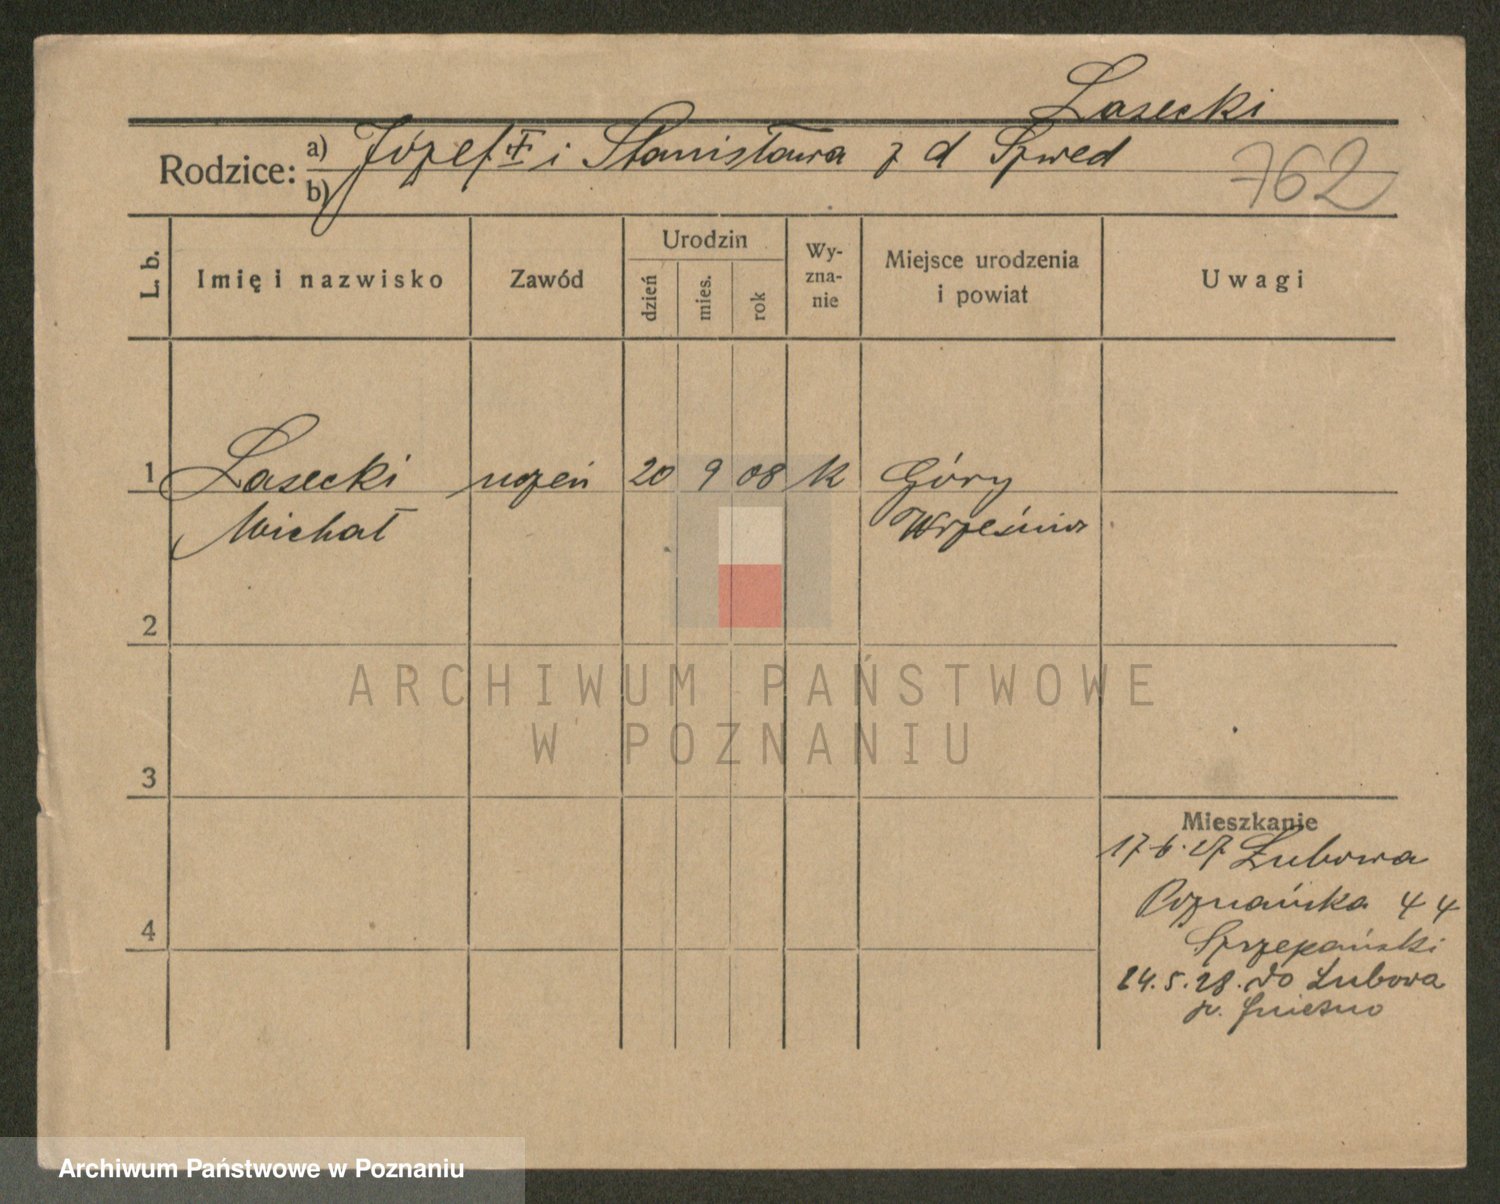 Lasecki
Rodzice: a) Józef i Stanisława z d Szwed
b)
762
L. b.
Imię i nazwisko
Zawód
Urodzin
dzień
mies.
rok
Wy-
zna-
nie
Miejsce urodzenia
i powiat
Uwagi
1 Lasecki uczeń 20 9 08 k Góry
Michał Września
2
ARCHIWUM PAŃSTWOWE
W POZNANIU
3
Mieszkanie
17.6.27 Łubowa
Poznańska 44
Szczepański
24.5.28. do Łubowa
p. Gniezno
4
Archiwum Państwowe w Poznaniu